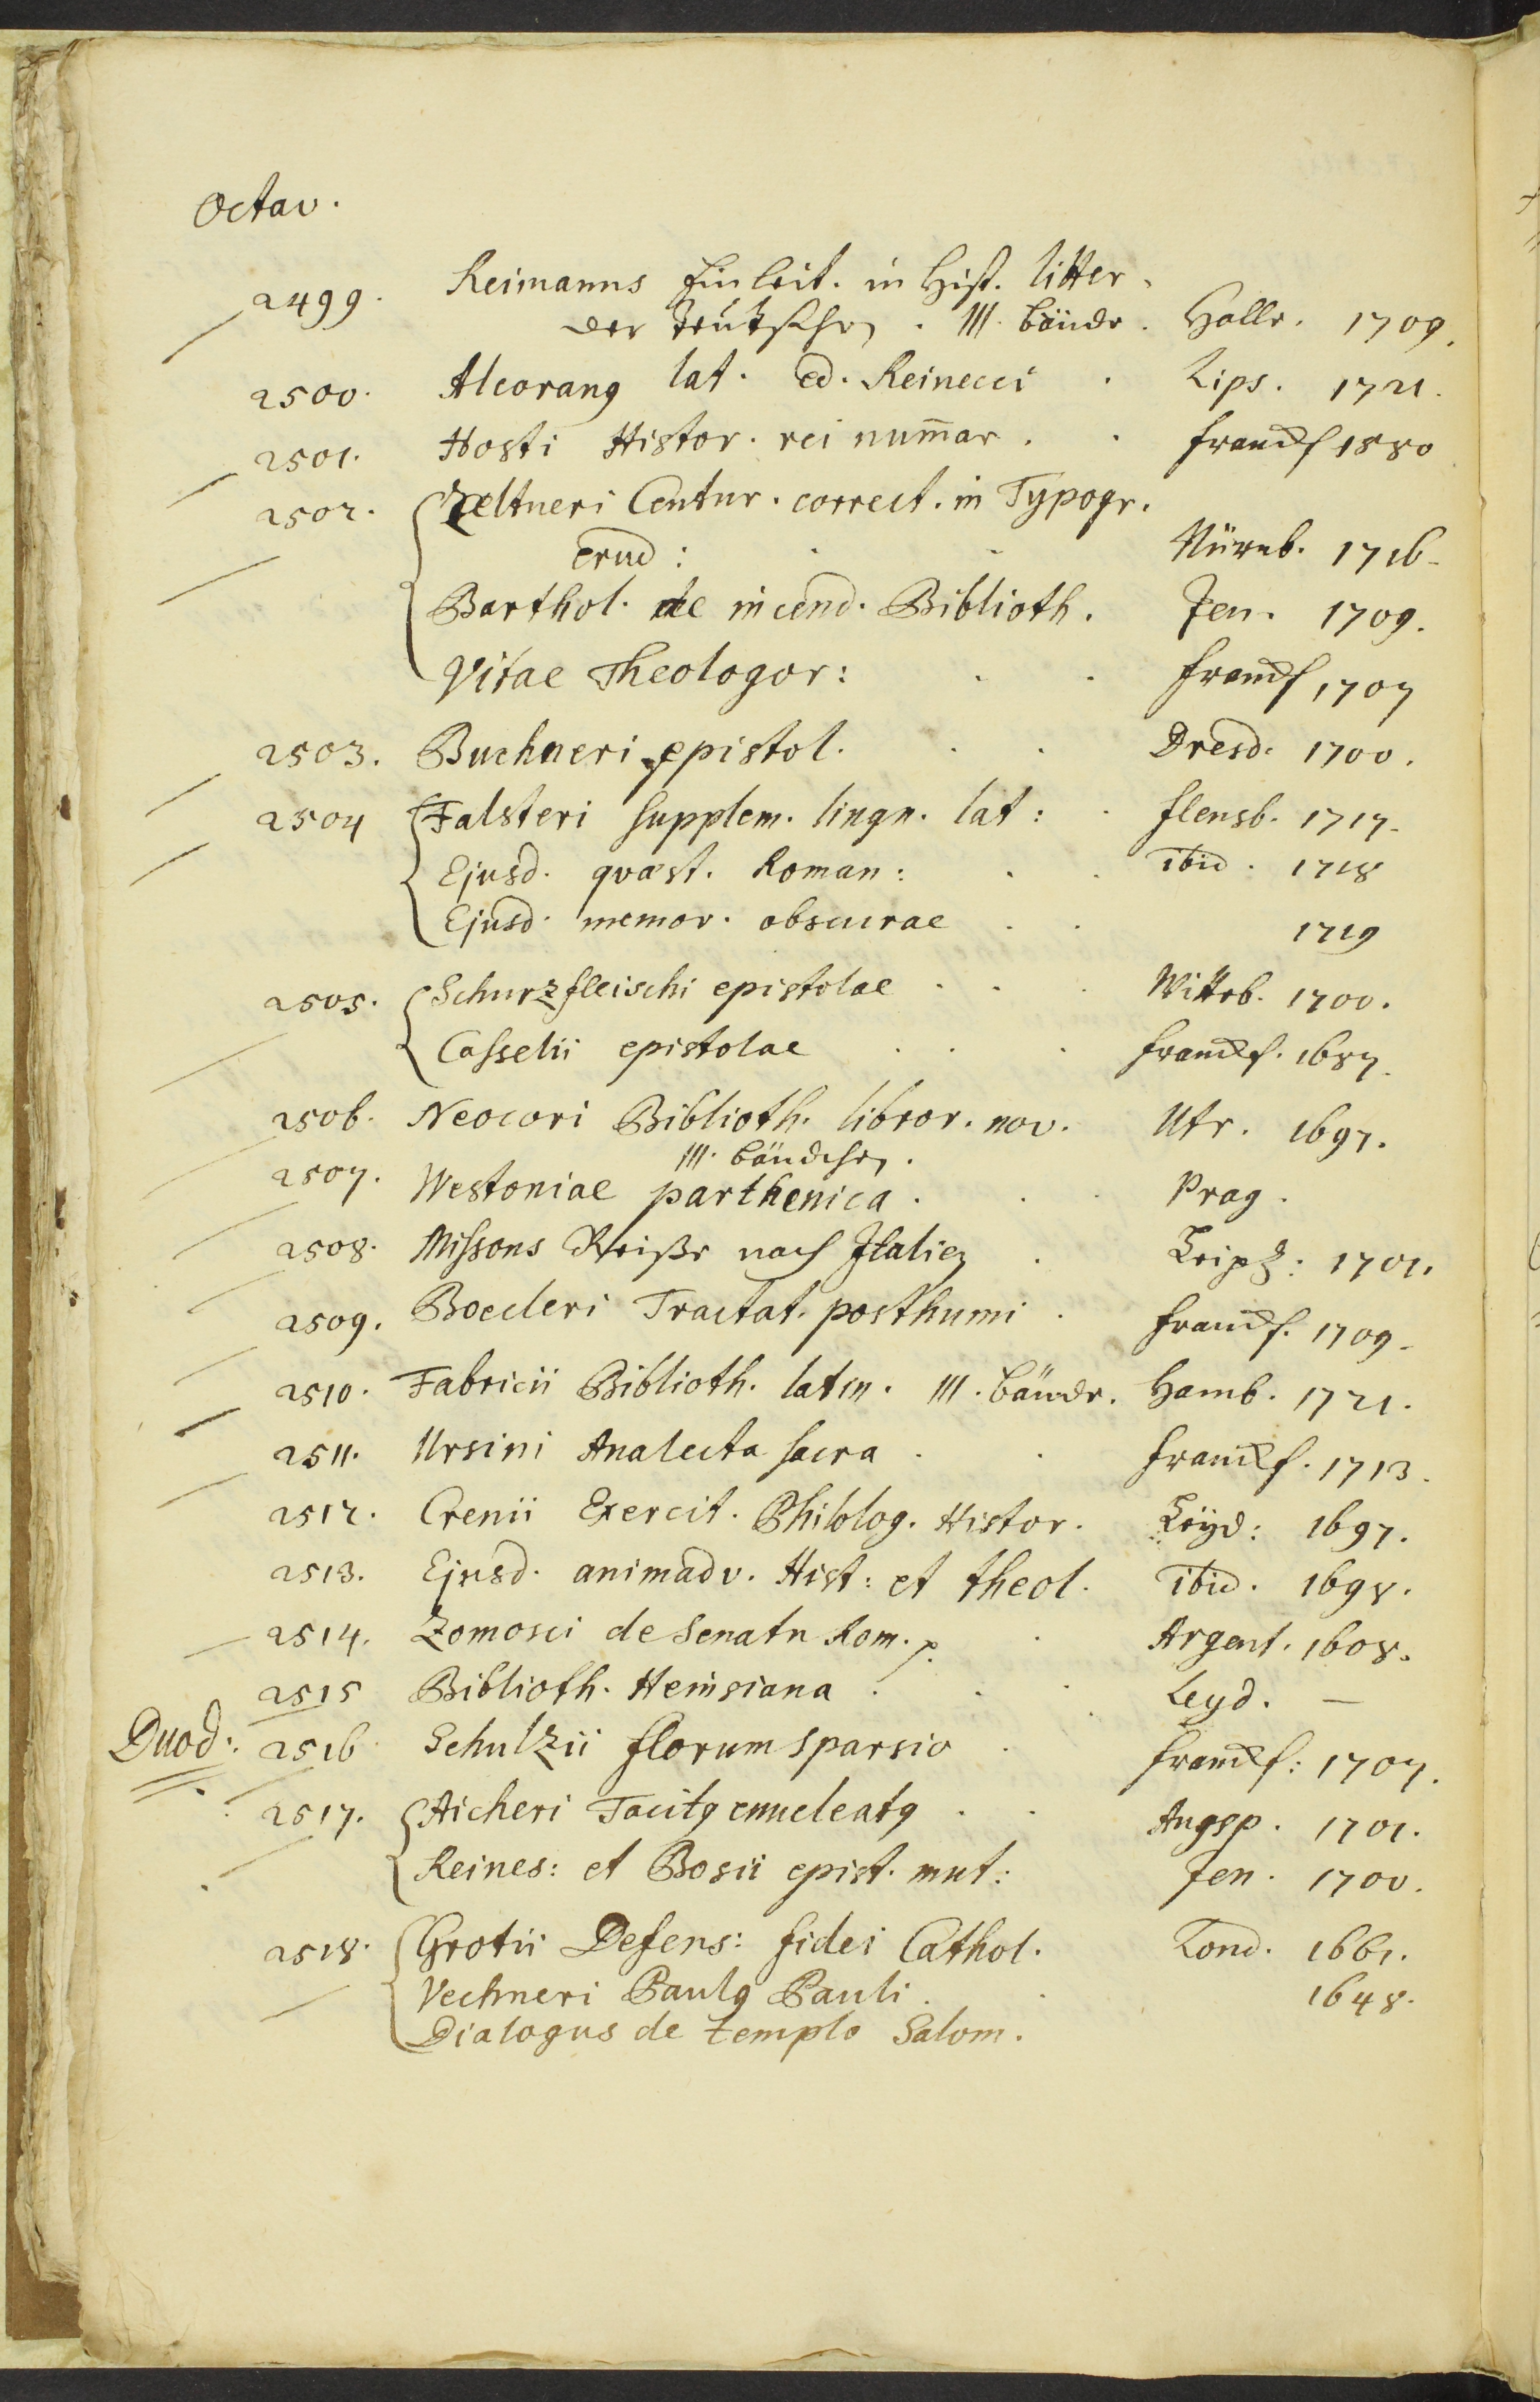 Octav.
2499. Reimanns Einleit. in Hist. litter.
der Teutschen . III. Bände. Halle. 1709.
2500. Alcoranus lat. ed. Reinecci . Lips. 1721.
2501. Hosti Histor. rei num̄ar . . Franckf 1580
2502. Zeltneri Centur. correct. in Typogr.
erud: . . Nürnb. 1716.
Barthol. de incend. Biblioth. Jen. 1709.
Vitae Theologor: . . Franckf 1707
2503. Buchneri epistol. . . Dresd. 1700.
2504 Falsteri supplem. lingu. lat: . Flensb. 1717.
Ejusd. quæst. Roman: . . ibid. 1718
Ejusd. memor. obscurae . . 1719
2505. Schurzfleischi epistolae . . . Witteb. 1700.
Casselii epistolae . . . Franckf. 1687.
2506. Neocori Biblioth. libror. nov. Utr. 1697.
III. Bändchen.
2507. Westoniae parthenica . . . Prag.
2508. Missons Reiße nach Italien . Leipz: 1701.
2509. Boecleri Tractat. posthumi . Franckf. 1709.
2510. Fabricii Biblioth. latin. III. Bände. Hamb. 1721.
2511. Ursini Analecta sacra . . Franckf. 1713.
2512. Crenii Exercit. Philolog. Histor. Leyd: 1697.
2513. Ejusd. animadv. Hist: et theol. ibid. 1698.
2514. Zomosci de Senatu Rom. p. . Argent. 1608.
2515 Biblioth. Heinsiana . . . Leyd. —
Duod: 2516 Schulzii florum sparsio . Franckf: 1707.
2517. Aicheri Tacitus enucleatus . . Augsp. 1701.
Reines: et Bosii epist. mut: Jen. 1700.
2518. Grotii Defens: fidei Cathol. Lond. 1661.
Vechneri Paulus Pauli . . 1648.
Dialogus de templo Salom.